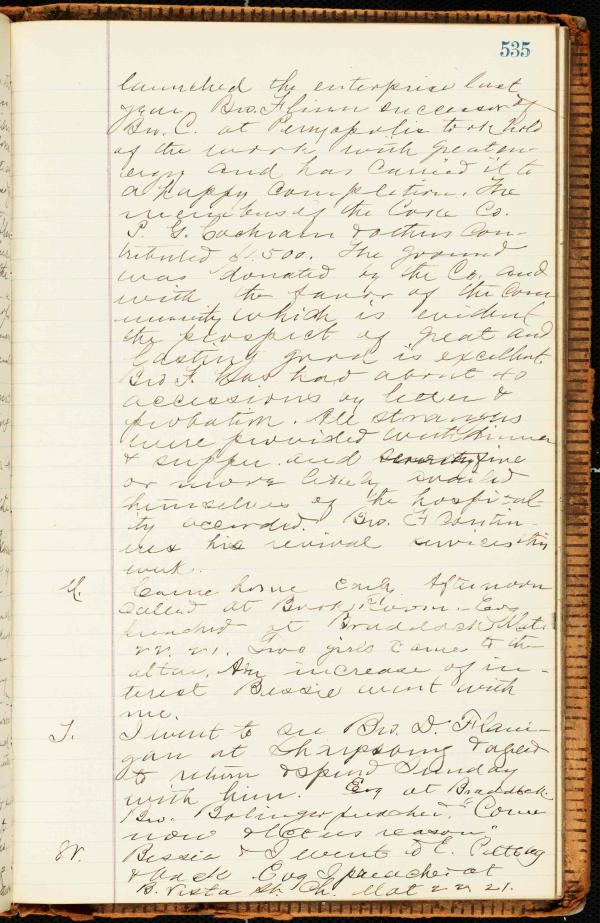 535
launched the enterprise last
year. Bro. Flinn successor of
Bro. C. at Perryopolis took hold
of the work with great en-
ergy and has carried it to
a happy completion. The
members of the Coke Co.
P. G. Cochran & others con-
tributed $1.500. The ground
was donated by the Co. and
with the favor of the com
munity which is evident
the prospect of great and
lasting good is excellent.
Bro F. has had about 40
accessions by letter &
probation. All strangers
were provided with dinner
& supper and seventy five
or more likely availed
themselves of the hospital-
ity accorded. Bro. F contin-
ues his revival services this
week.
M. Came home early. Afternoon
called at Book Room. Evg
preached at Braddock Mat.
22. 21. Two girls came to the
altar. An increase of in-
terest Bessie went with
me.
T. I went to see Bro. D. Flani-
gan at Sharpsburg & agreed
to return & spend Sunday
with him. Evg at Braddock
Bro. Bolinger preached, "Come
now & let us reason".
W. Bessie & I went to E. Pittsbg
& back. Evg I preached at
B. Vista St. Ch. Mat 22 21.